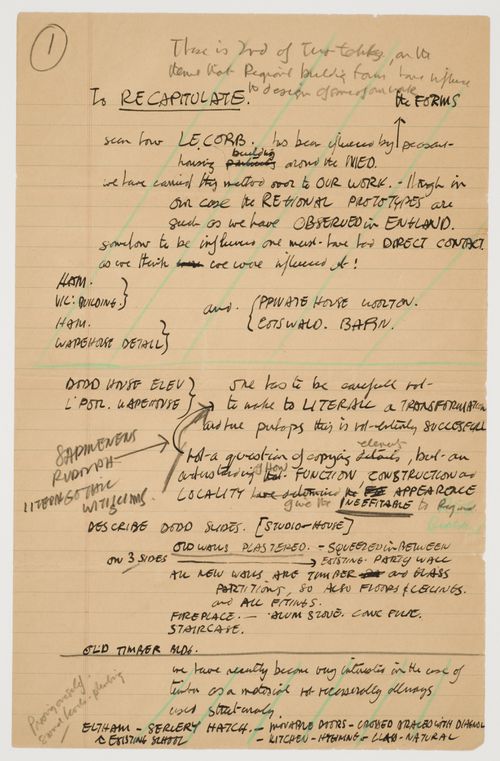 1
These is 2nd of Two talks, on the
theme that Regional building forms have influence
to design of some of our work
To RECAPITULATE. the FORMS
seen how LE CORB. has been influenced by peasant-
housing building around the MED.
we have carried this method over to OUR WORK. - though in
our case the REGIONAL PROTOTYPES are
such as we have OBSERVED in ENGLAND.
somehow to be influenced one must have had DIRECT CONTACT.
as we think we were influenced by it!
HAM.
VIC. BUILDING.
and. PRIVATE HOUSE WOOLTON.
HAM.
WAREHOUSE DETAIL
COTSWALD. BARN.
DODD HOUSE ELEV
L'POOL. WAREHOUSE
one has to be carefull not-
to make to LITERALL a TRANSFORMATION
and perhaps this is not entirely SUCCESSFULL
RUDOLPH
WITICISMS.
not a question of copying details, elements but-an
understanding of how FUNCTION, CONSTRUCTION and
LOCALITY have determined the APPEARENCE
give the INEFFITABLE to Regional
DESCRIBE DODD SLIDES. [STUDIO-HOUSE]
ON 3 SIDES OLD WALLS PLASTERED. - SQUEEZED in BETWEEN
EXISTING PARTY WALL
ALL NEW WALLS ARE TIMBER and GLASS
PARTITIONS, SO ALSO FLOORS & CEILINGS.
and ALL FITTINGS.
FIREPLACE. - ALUM STOVE. CONC FLUE.
STAIRCASE.
OLD TIMBER BLDG.
we have recently become very interested in the use of
timber as a material not necessarily always
used structurally.
ELTHAM - SERVERY HATCH. - MOVABLE DOORS - CROSSED BRACED WITH DIAGNOL
EXISTING SCHOOL - KITCHEN - - CLAD - NATURAL